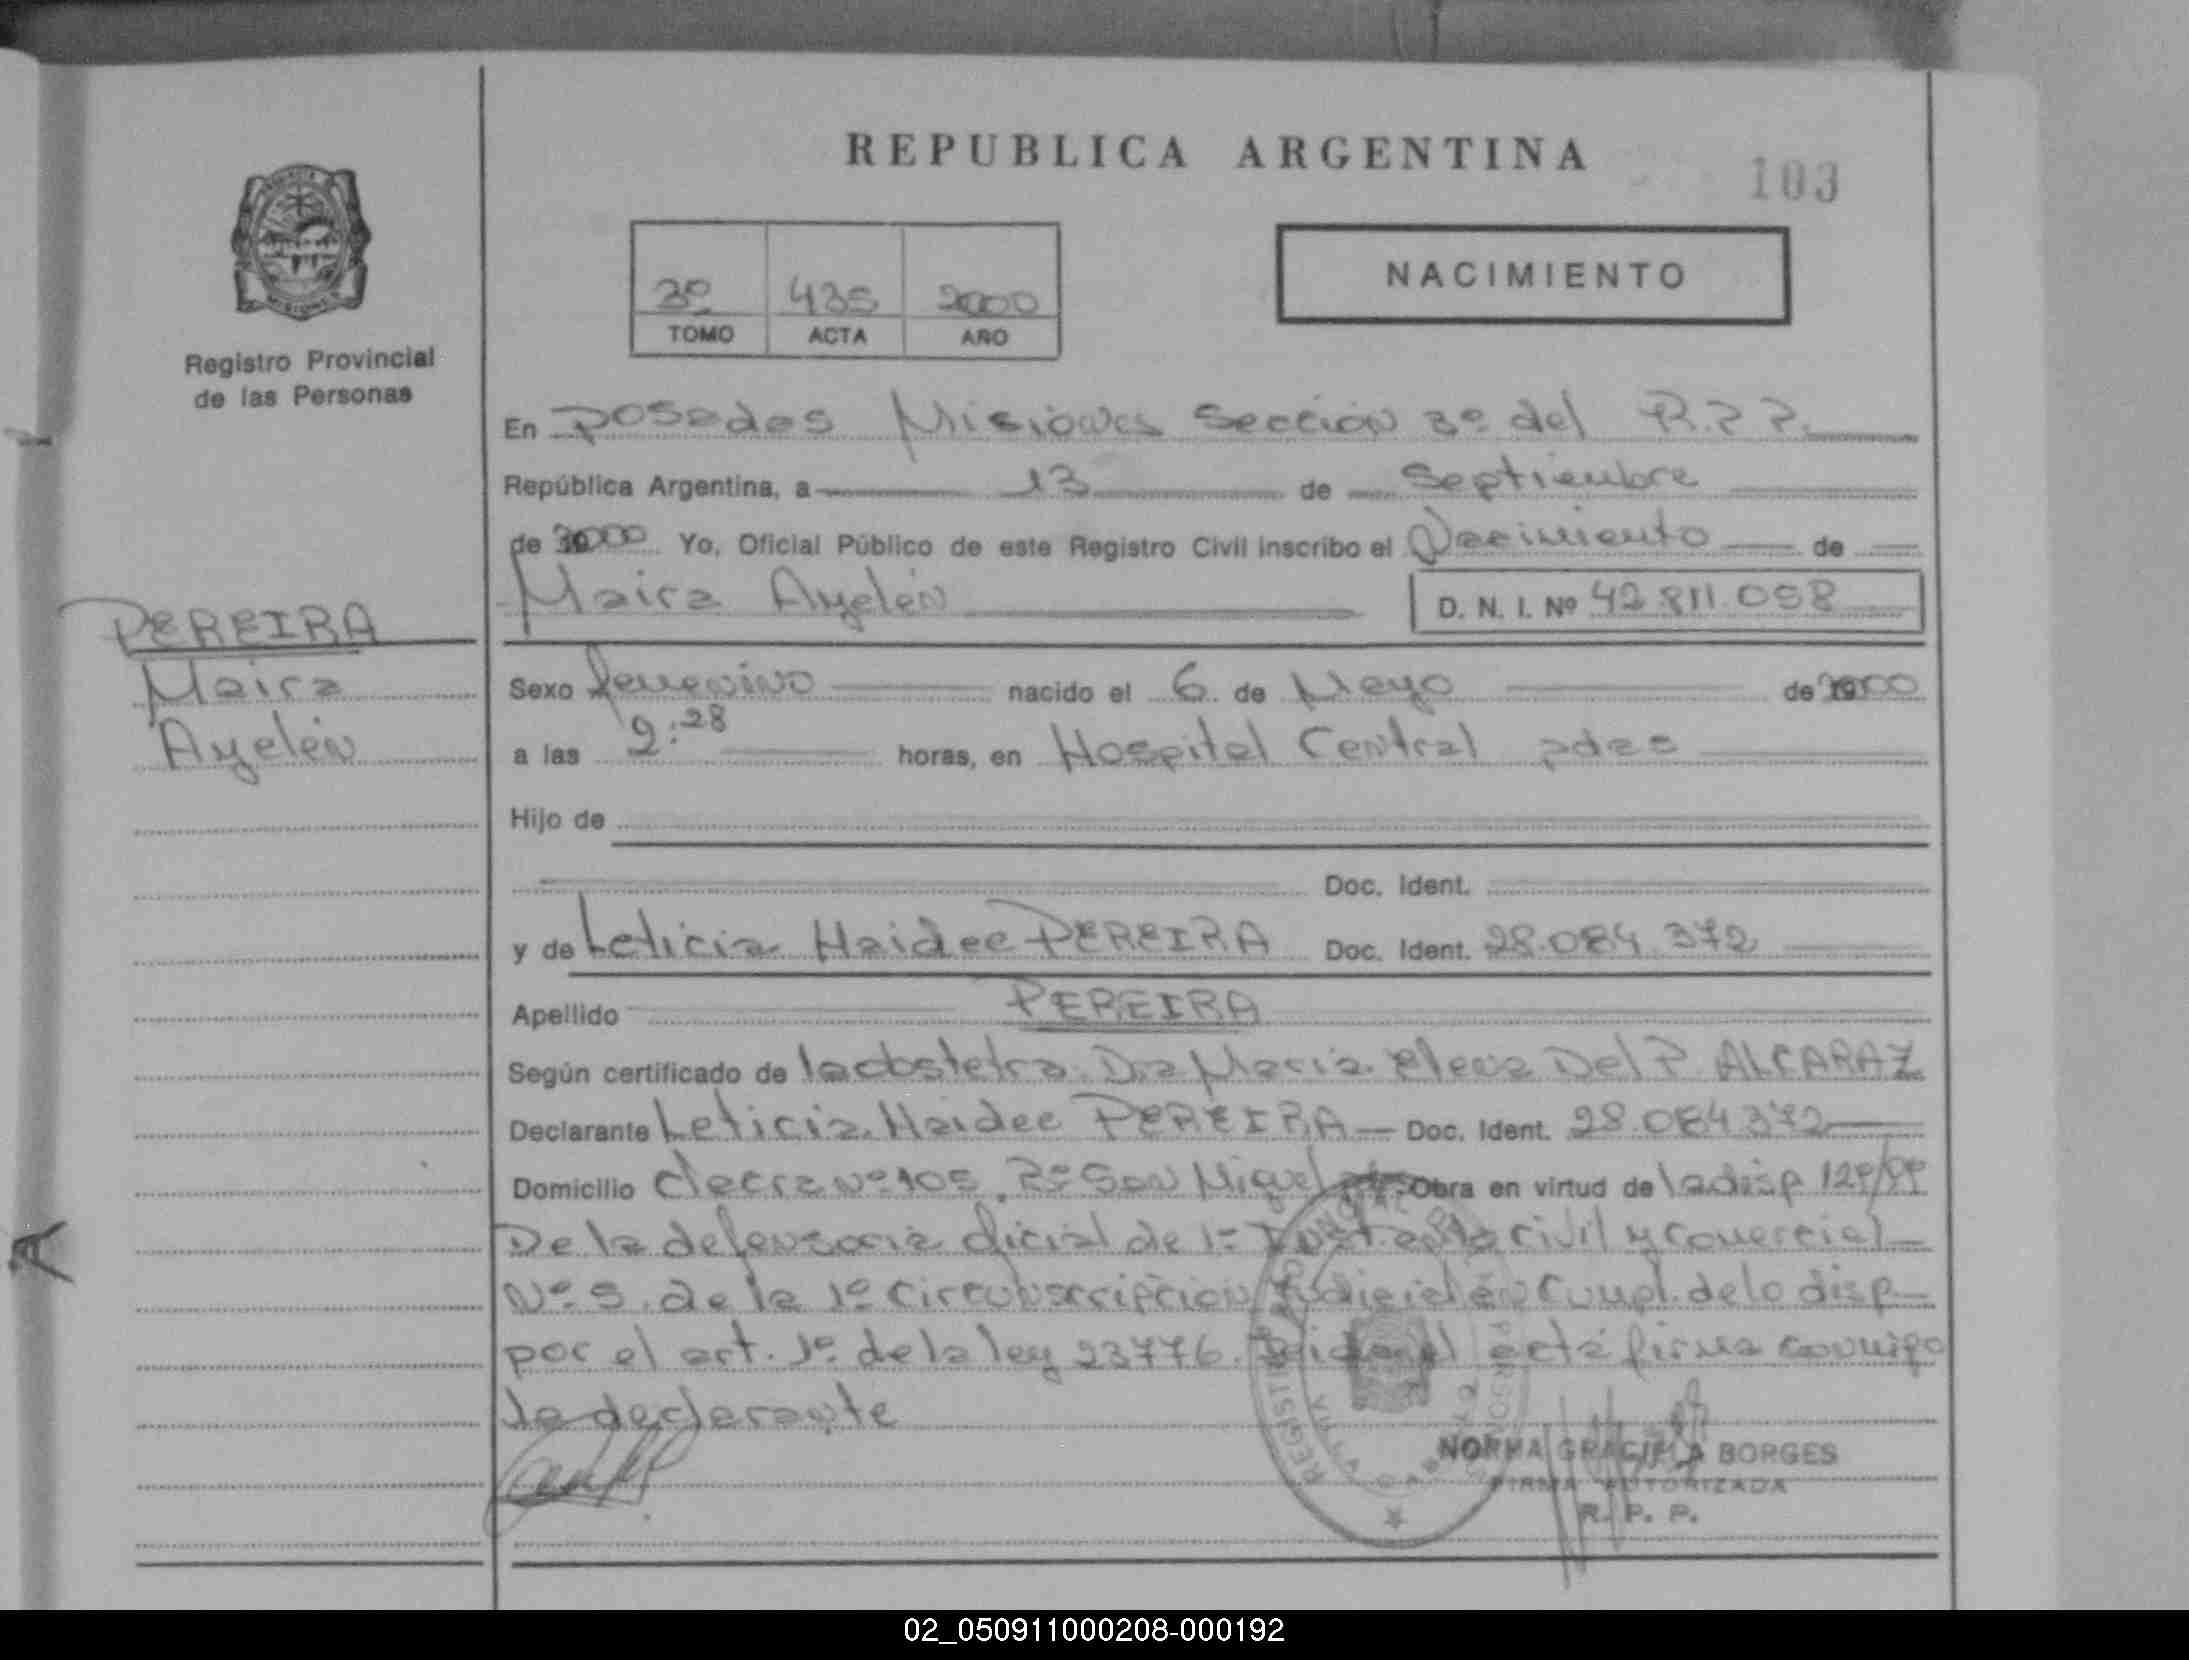 REPUBLICA ARGENTINA
103
3º 435 2000
TOMO ACTA AÑO
NACIMIENTO
Registro Provincial
de las Personas
En Posadas Misiones Sección 3º del R.P.P.
República Argentina, a 13 de Septiembre
de 2000 Yo, Oficial Público de este Registro Civil inscribo el Nacimiento de
Maira Ayelén D. N. I. Nº 42.811.058
PEREIRA
Maira
Ayelén
Sexo femenino nacido el 6 de Mayo de 2000
a las 9:28 horas, en Hospital Central pdas
Hijo de
Doc. Ident.
y de Leticia Haidee PEREIRA Doc. Ident. 28.084.372
Apellido PEREIRA
Según certificado de la obstetra. Dra Maria Elena Del P. ALCARAZ
Declarante Leticia Haidee PEREIRA Doc. Ident. 28.084.372
Domicilio chacra nº 105 Bº San Miguel Obra en virtud de la disp
De la defensoria oficial de 1º Instancia civil y comercial
Nº 5. de la 1º circunscripcion Judicial en Cumpl. de lo disp
por el art. 1º de la ley 23776. Leida el acta firma conmigo
la declarante
NORMA GRACIELA BORGES
FIRMA AUTORIZADA
R. P. P.
02_050911000208-000192